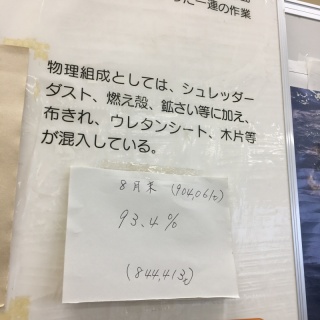 した一連の作業
物理組成としては、シュレッダー
ダスト、燃え殻、鉱さい等に加え、
布きれ、ウレタンシート、木片等
が混入している。
8月末 (904,061t)
93.4%
(844,413t)